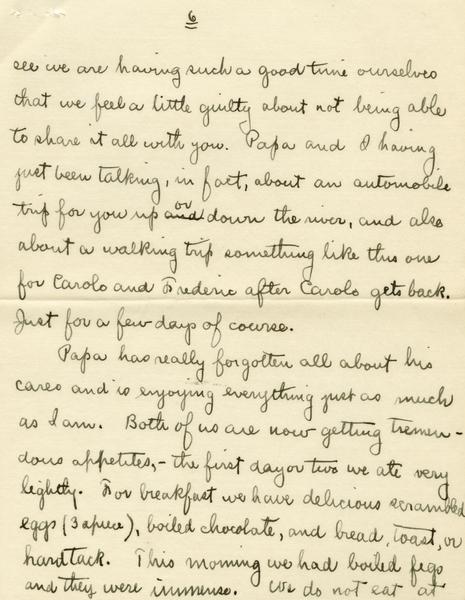 6
see we are having such a good time ourselves
that we feel a little guilty about not being able
to share it all with you. Papa and I having
just been talking, in fact, about an automobile
trip for you up and or down the river, and also
about a walking trip something like this one
for Carolo and Frederic after Carolo gets back.
Just for a few days of course.
Papa has really forgotten all about his
cares and is enjoying everything just as much
as I am. Both of us are now getting tremen-
dous appetites, - the first day or two we ate very
lightly. For breakfast we have delicious scrambled
eggs (3 apiece), boiled chocolate, and bread, toast, or
hardtack. This morning we had boiled figs
and they were immense. We do not eat at